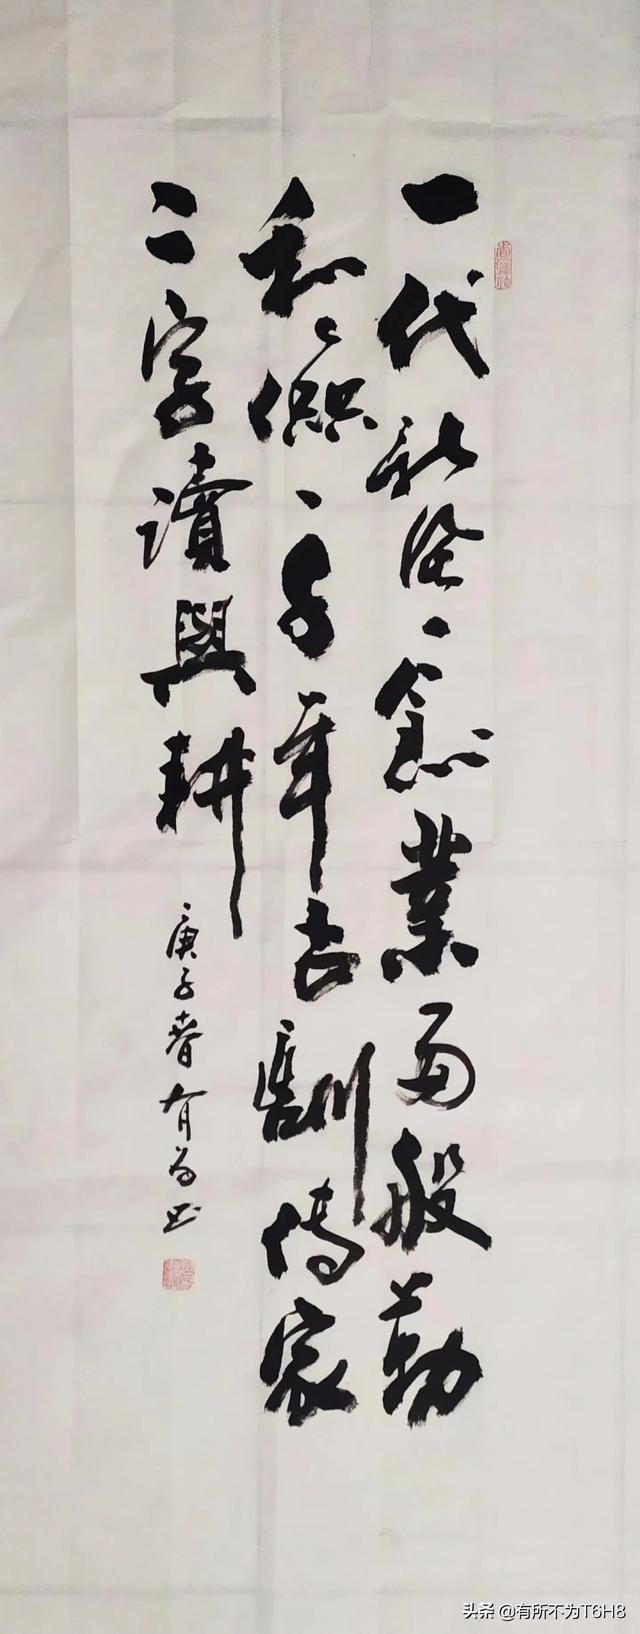 一代新風創業兩般勤
和儉千年古訓傳家
二字讀與耕
庚子春有为书
头条 @有所不为T6H8